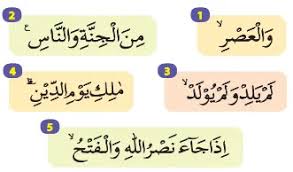 1 وَالْعَصْرِۙ
2 مِنَ الْجِنَّةِ وَالنَّاسِ ࣖ
3 لَمْ يَلِدْ وَلَمْ يُوْلَدْۙ
4 مٰلِكِ يَوْمِ الدِّيْنِۗ
5 اِذَا جَاۤءَ نَصْرُ اللّٰهِ وَالْفَتْحُۙ